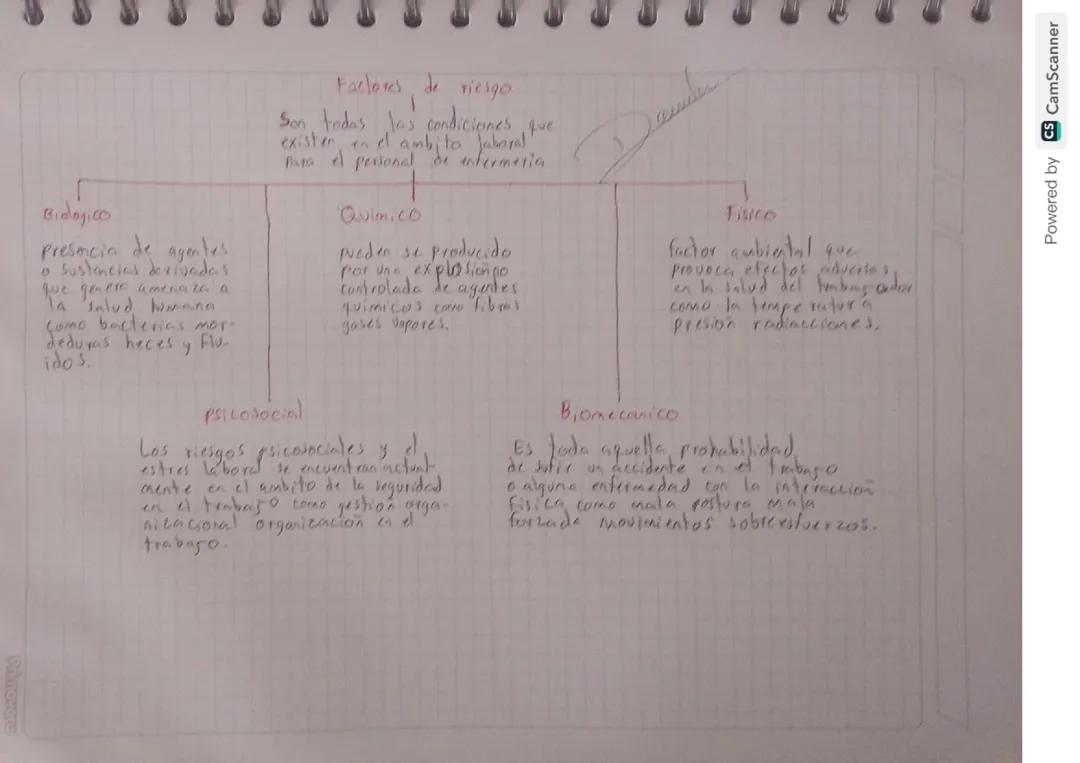 Factores de riesgo
Son todas las condiciones que
existen en el ambito laboral
para el personal de enfermeria
Biologico
presencia de agentes
o sustancias derivadas
que genere amenaza a
la salud humana
como bacterias mor-
deduras heces y flu-
idos.
Quimico
pueden se producido
por una explosion no
controlada de agentes
quimicos como fibras
gases vapores.
Fisico
factor ambiental que
provoca efectos adversos
en la salud del trabajador
como la temperatura
presion radiacciones.
psicosocial
Los riesgos psicosociales y el
estres laboral se encuentran actual-
mente en el ambito de la seguridad
en el trabajo como gestion orga-
nizacional organización en el
trabajo.
Biomecanico
Es toda aquella probabilidad
de sufir un accidente en el trabajo
o alguna enfermedad con la interacción
fisica como mala postura mala
forzada movimientos sobreesfuerzos.
Powered by CS CamScanner